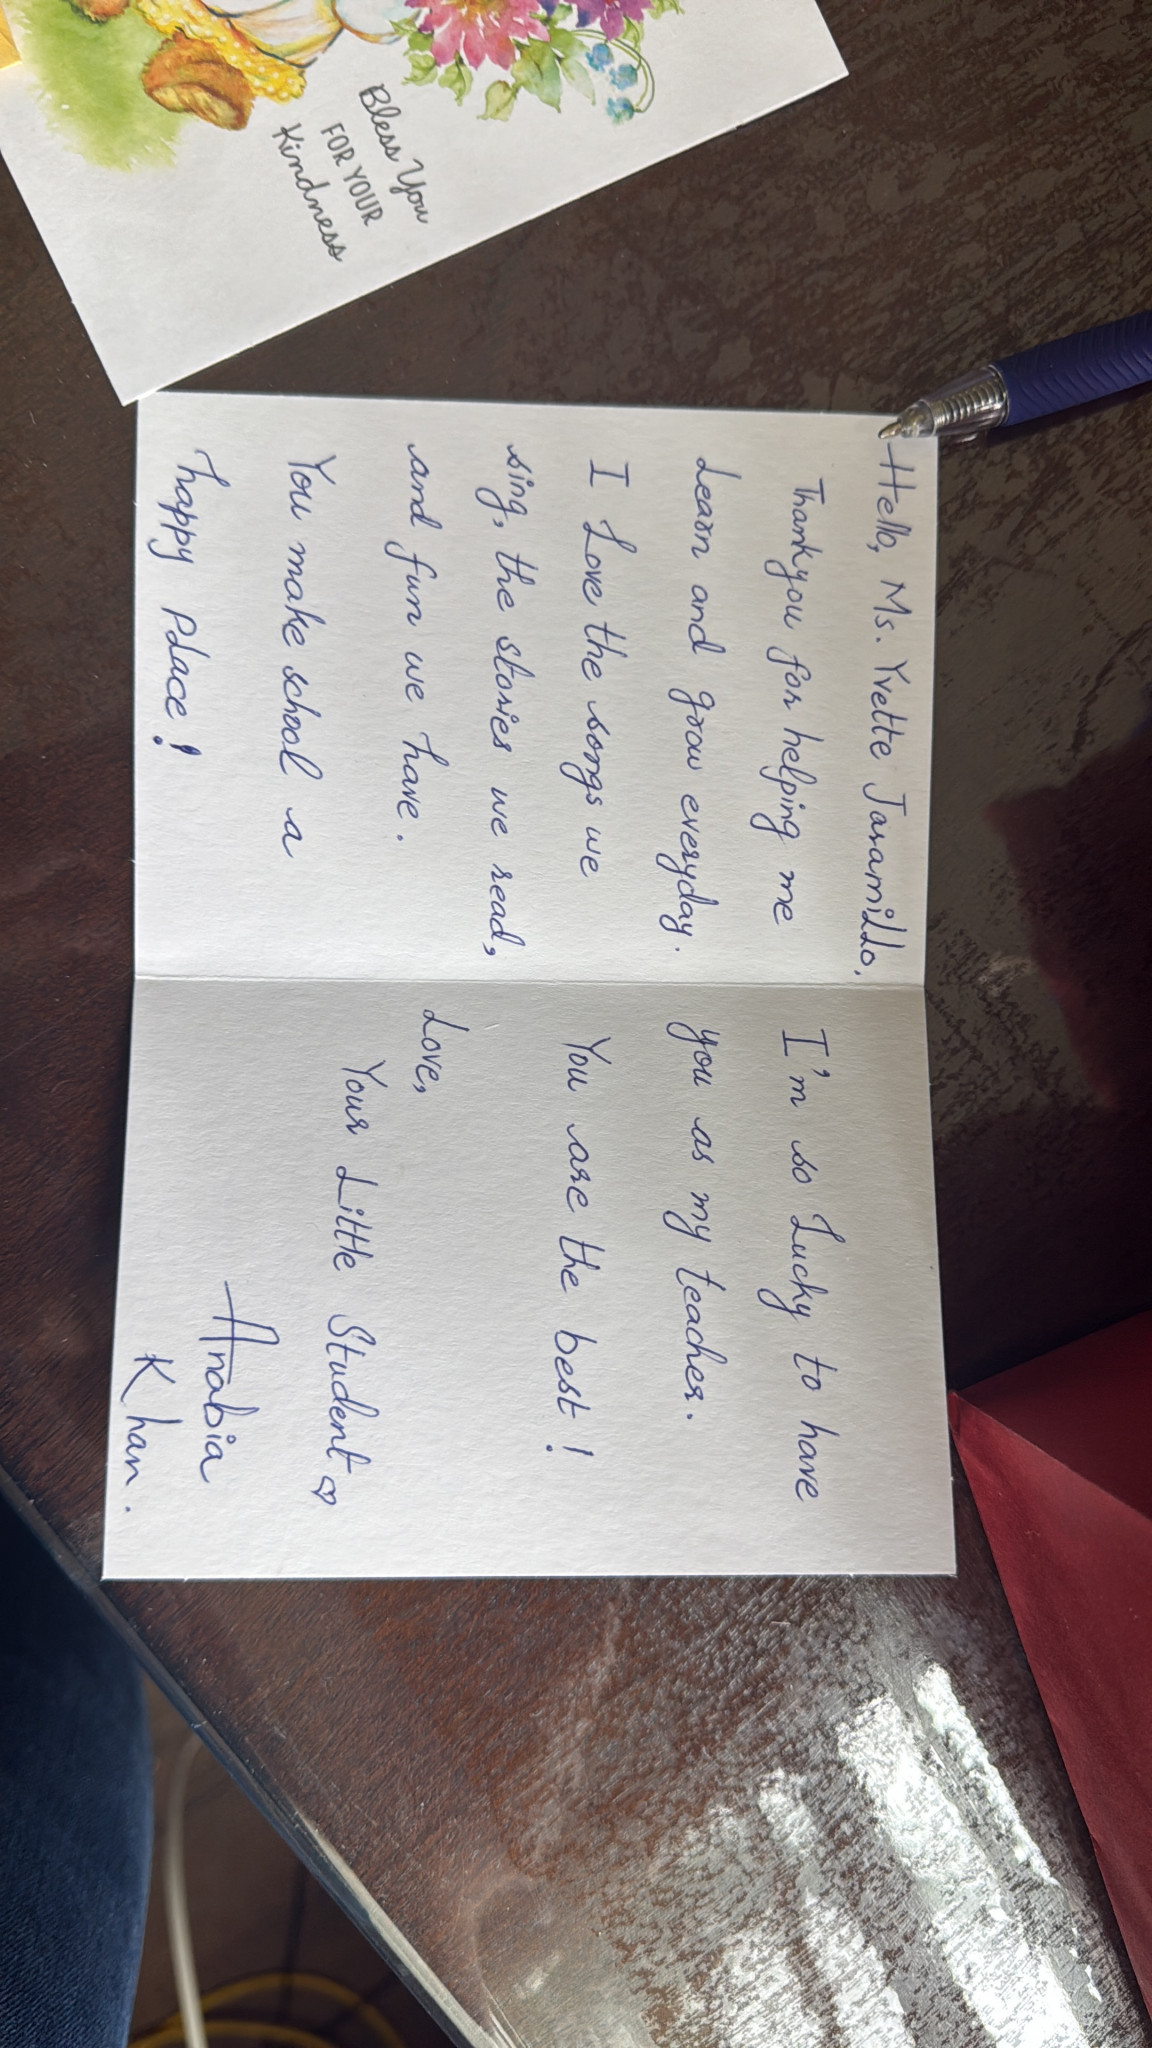 Bless You
FOR YOUR
Kindness
Hello, Ms. Yvette Jaramillo,
Thankyou for helping me
Learn and grow everyday.
I Love the songs we
sing, the stories we read,
and fun we have.
You make school a
happy place!
I'm so Lucky to have
you as my teacher.
You are the best!
Love,
Your Little Student ♡
Anabia
Khan.